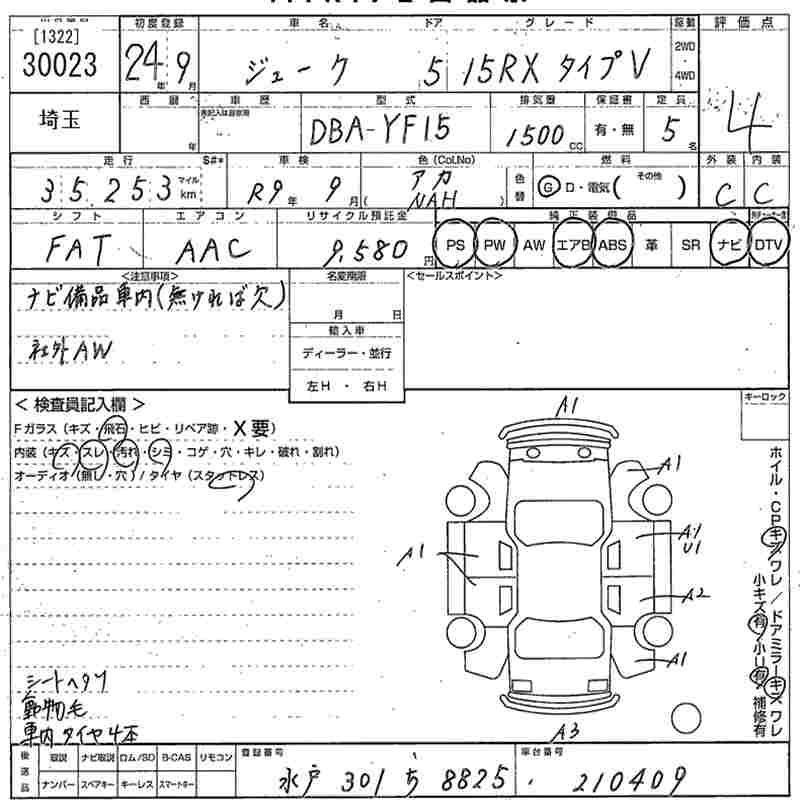 [1322]
30023
初度登録
24年 9月
車名
ジューク
ドア
5
グレード
15RX タイプV
駆動
2WD
4WD
評価点
4
埼玉
西暦
年
車歴
型式
DBA-YF15
排気量
1500cc
保証書
有・無
定員
5名
外装
C
内装
C
走行
35,253
マイル
km
S#*
車検
R9年 9月
色(Col,No)
アカ
( NAH )
色替
燃料
G D・電気( その他 )
シフト
FAT
エアコン
AAC
リサイクル預託金
9,580円
純正装備品
PS PW AW エアB ABS 革 SR ナビ DTV
<注意事項>
ナビ備品車内(無ければ欠)
社外AW
名変期限
月 日
輸入車
ディーラー・並行
左H ・ 右H
<セールスポイント>
キーロック
< 検査員記入欄 >
Fガラス(キズ・飛石・ヒビ・リペア跡・X要)
内装(キズ・スレ・汚れ・シミ・コゲ・穴・キレ・破れ・割れ)
オーディオ(無し・穴)/タイヤ(スタッドレス)
A1
A1
A1
U1
A1
A2
A1
A3
ホイル・CPキズワレ/ドアミラーキズワレ
小キズ有 小U有 補修有
シートヘタリ
動物毛
車内タイヤ4本
後送品
取説 ナビ取説 ロム/SD B-CAS リモコン
ナンバー スペアキー キーレス スマートキー
登録番号
水戸 301 ち 8825
車台番号
210409